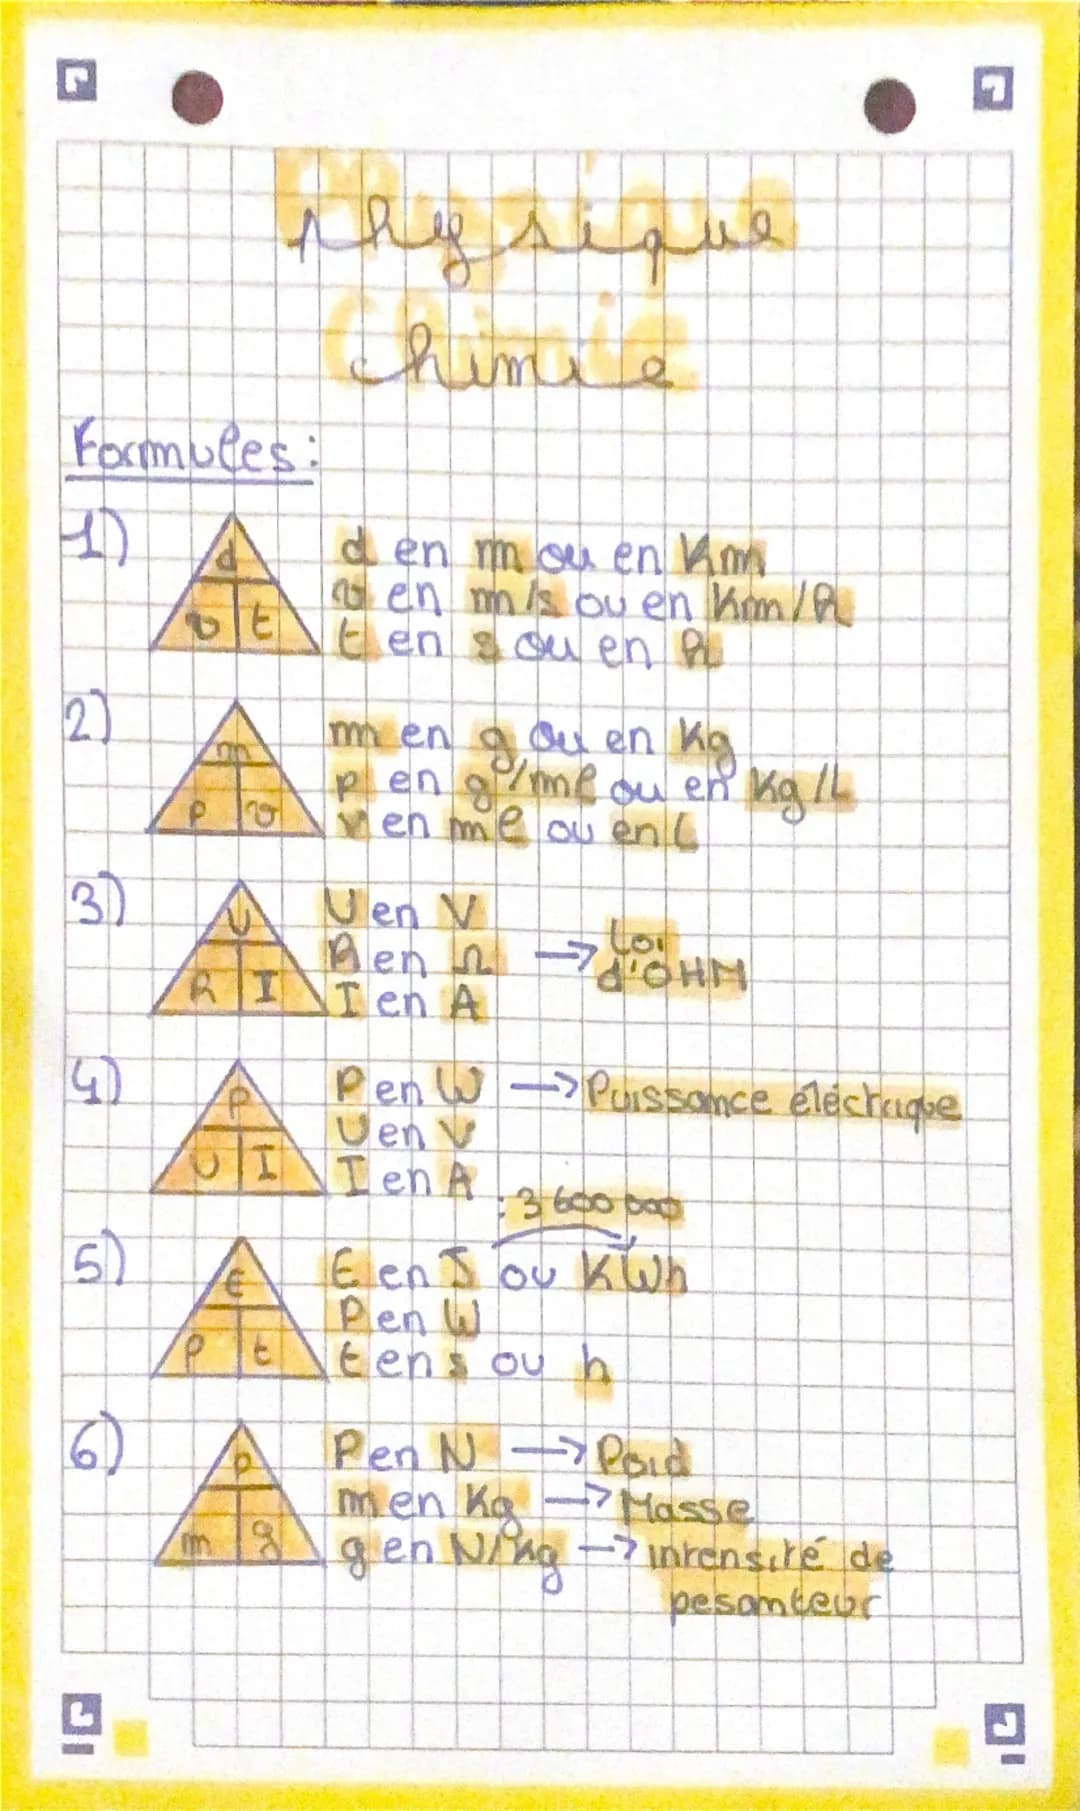 Physique
Chimie
Formules :
1)
d
v t
d en m ou en Km
v en m/s ou en Km/h
t en s ou en h
2)
m
ρ v
m en g ou en Kg
ρ en g/ml ou en Kg/L
v en ml ou en L
3)
U
R I
U en V
R en Ω → Loi d'OHM
I en A
4)
P
U I
P en W → Puissance éléctrique
U en V
I en A
: 3 600 000
5)
E
P t
E en J ou KWh
P en W
t en s ou h
6)
P
m g
P en N → Poid
m en Kg → Masse
g en N/kg → intensité de
pesanteur